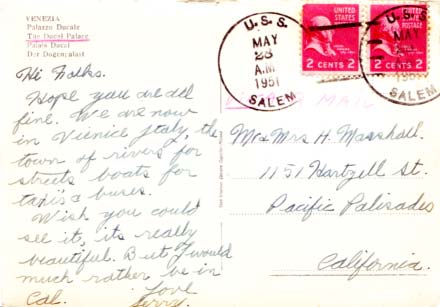 VENEZIA
Palazzo Ducale
The Ducal Palace
Palais Ducal
Der Dogenpalast
Hi Folks.
Hope you are all
fine. We are now
in Vienice Italy, the
town of rivers for
streets boats for
taxi's & buses.
Wish you could
see it, it's really
beautiful. But I would
much rather be in
Cal. Love
U.S.S.
MAY
23
A.M
1951
SALEM
UNITED STATES POSTAGE
2 CENTS 2
UNITED STATES POSTAGE
2 CENTS 2
U.S.S.
MAY
1951
SALEM
AIR MAIL
Mr & Mrs H. Marshall.
1151 Hartzell St.
Pacific Palisades
California.